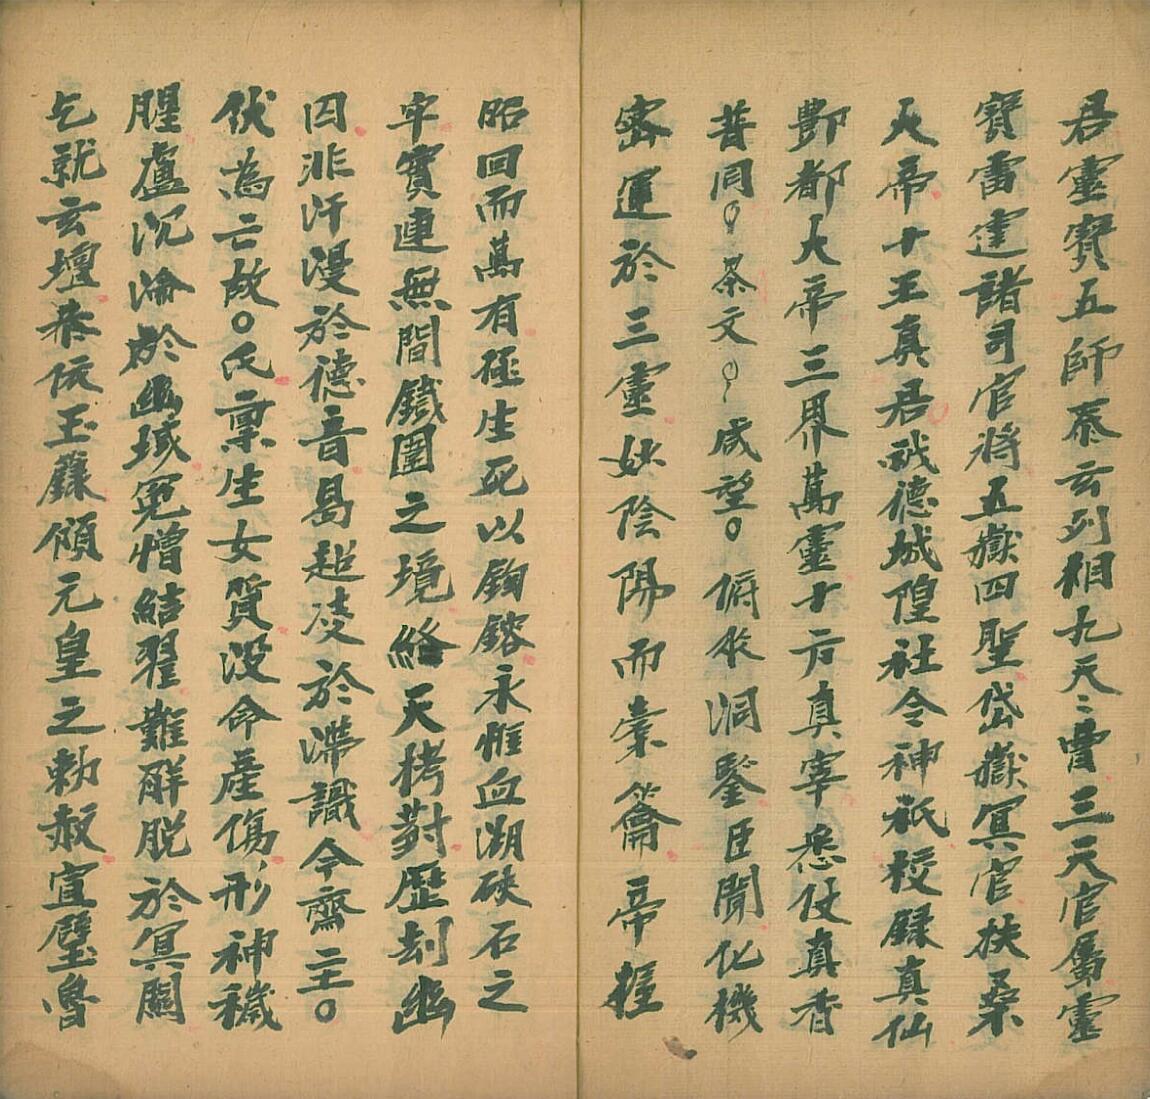 君靈寶五師泰玄列相九天〻曹三天官屬靈
寶雷霆諸司官將五嶽四聖岱嶽冥官扶桑
大帝十王真君戒德城隍社令神祇校錄真仙
酆都大帝三界萬靈十方真宰悉仗真香
普同○茶文○咸望○俯垂洞鑒臣聞化機
密運於三靈妙陰陽而橐籥帝握
昭回而萬有經生死以鈞鎔永惟血湖硤石之
牢實連無間鐵圍之境絡天拷對歷刻幽
囚非汗漫於德音曷超凌於滯識今齋主○
伏為亡故○氏稟生女質没命產傷形神穢
腥盧沉淪於幽域冤憎結翟難解脱於冥關
乞就玄壇恭依玉籙傾元皇之勅赦宣璧魯